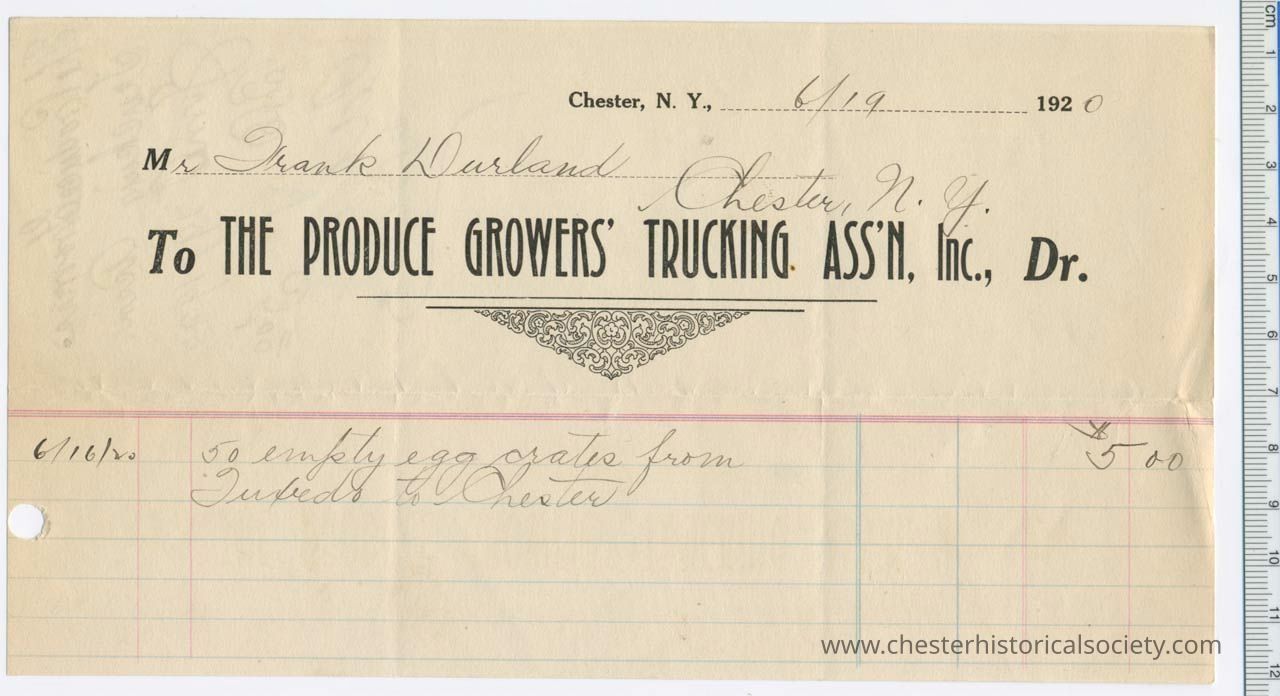 Chester, N. Y., 6/19 1920
Mr Frank Durland
Chester, N. Y.
To THE PRODUCE GROWERS' TRUCKING ASS'N, Inc., Dr.
6/16/20 50 empty egg crates from $5 00
Tuxedo to Chester
www.chesterhistoricalsociety.com
cm 1 2 3 4 5 6 7 8 9 10 11 12